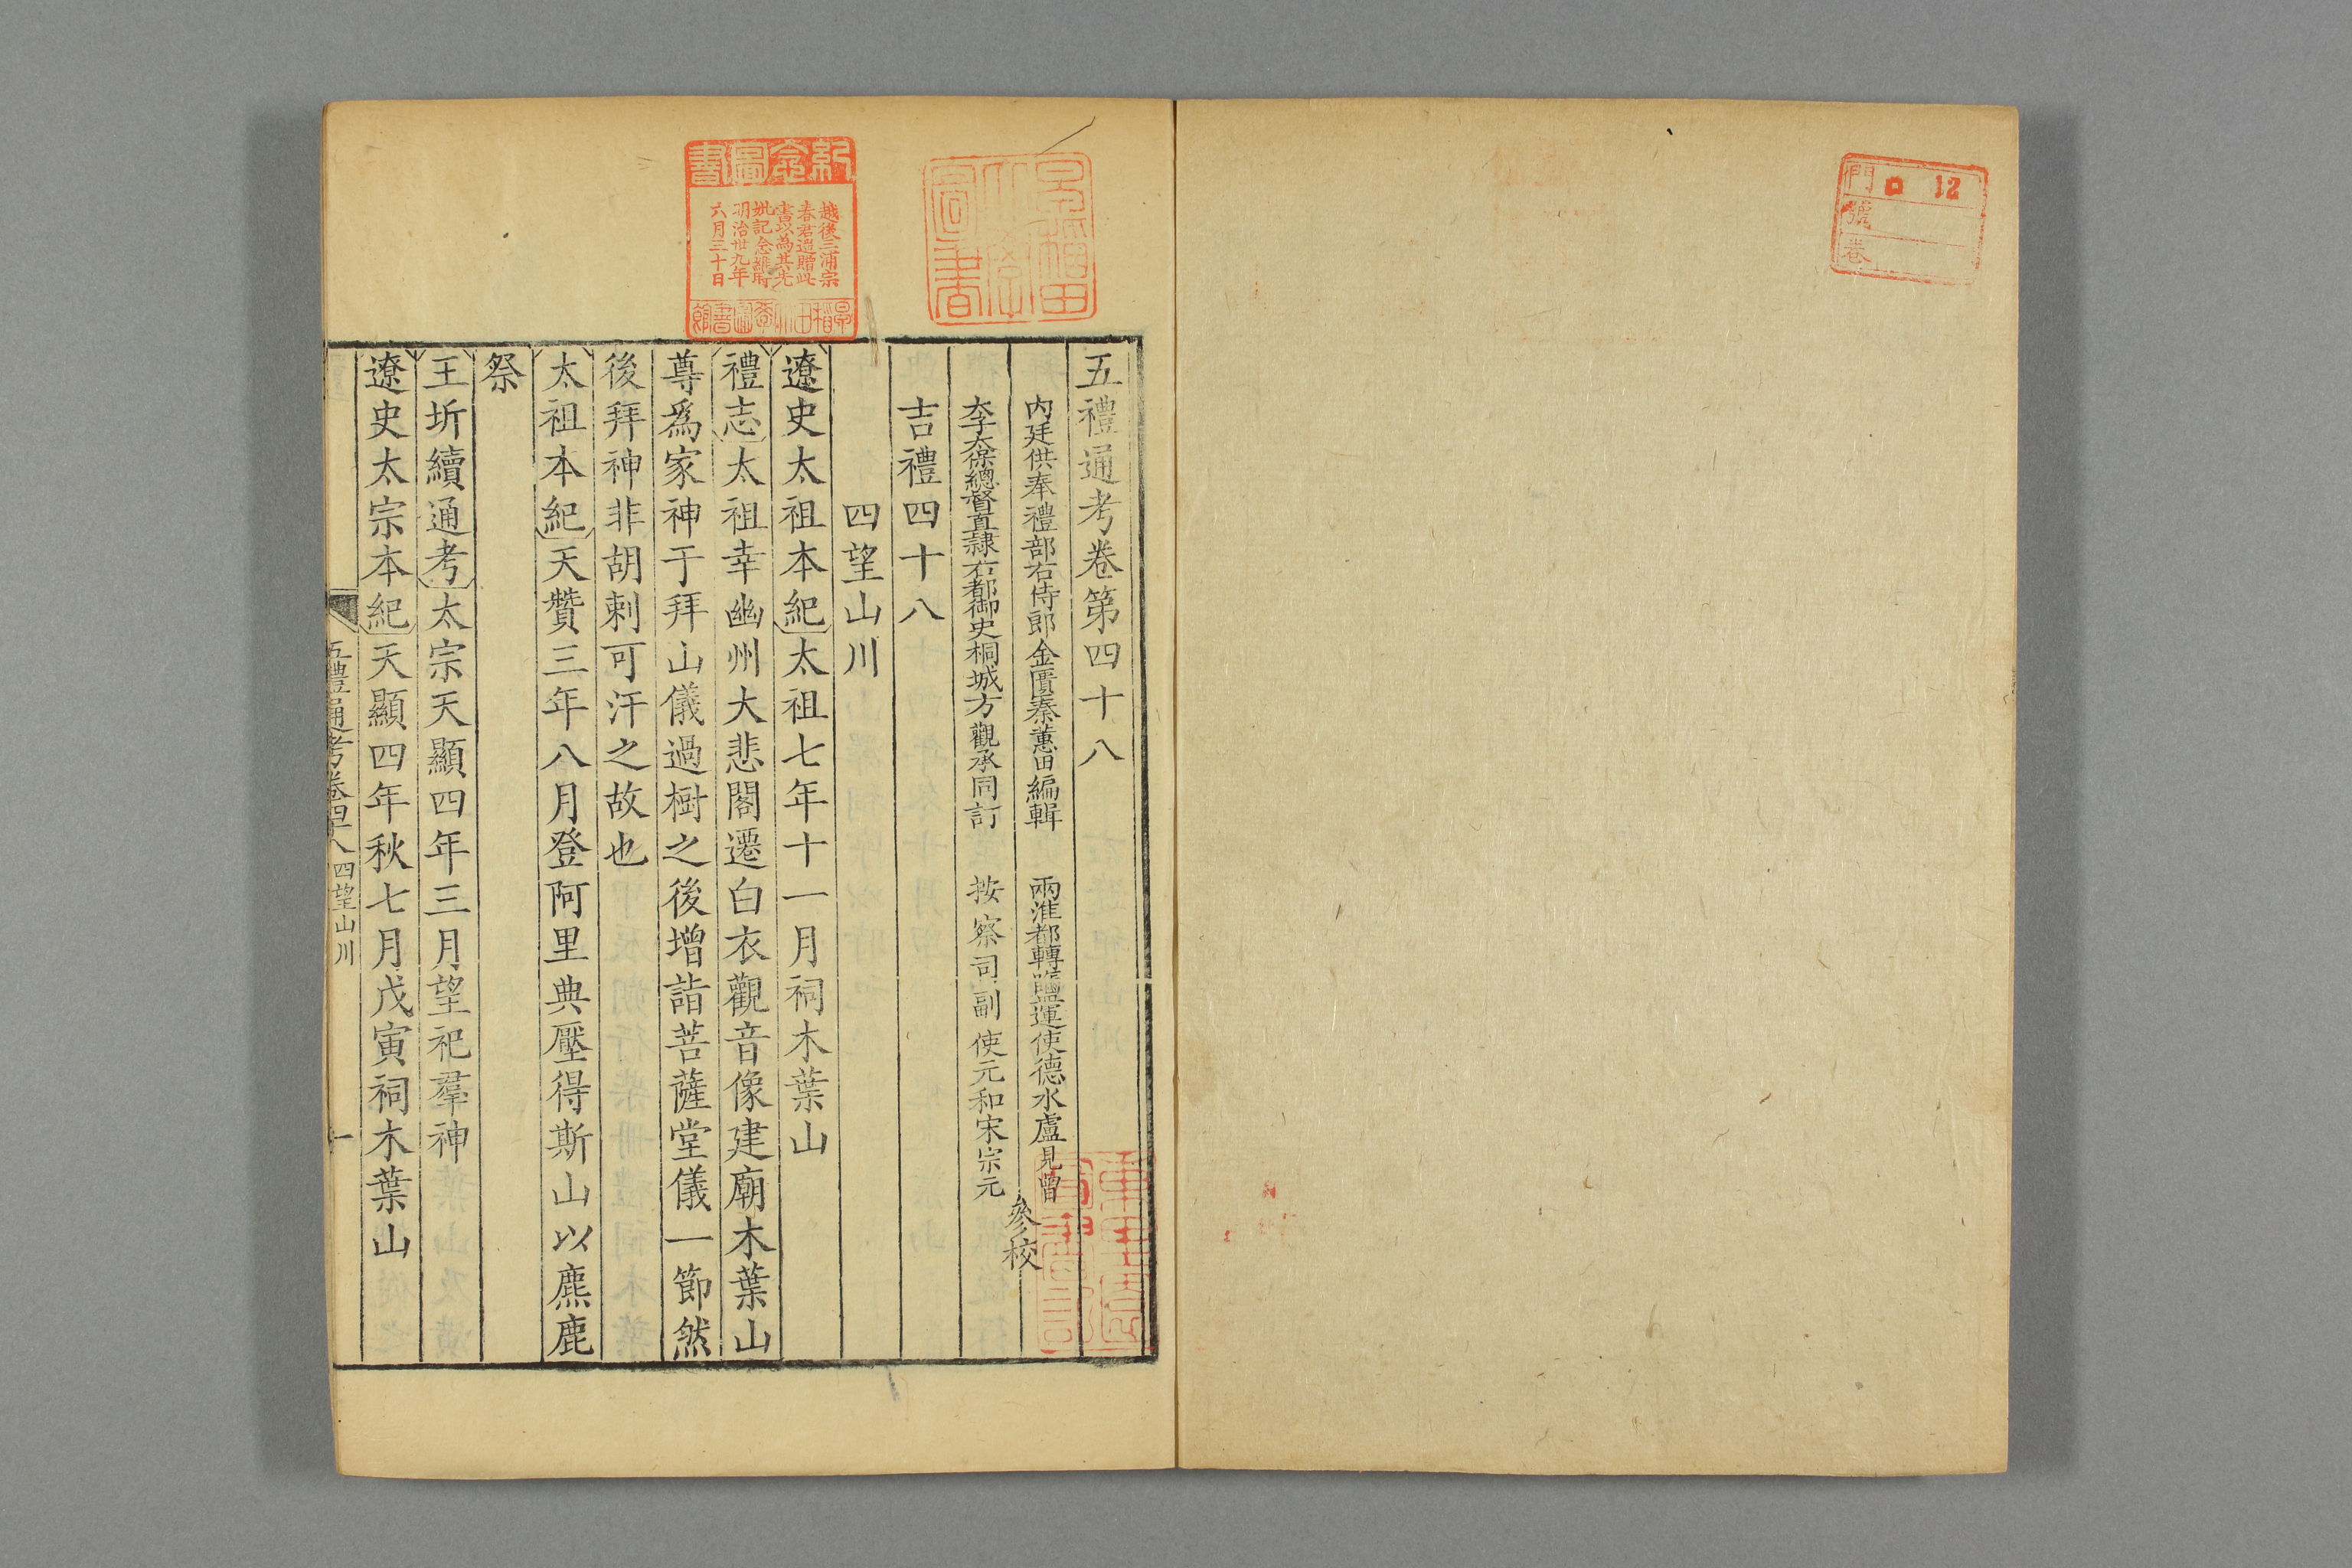 門 12
號
卷
五禮通考卷第四十八
內廷供奉禮部右侍郎金匱秦蕙田編輯 兩淮都轉鹽運使德水盧見曾
太子太保總督直隸右都御史桐城方觀承同訂 按察司副使元和宋宗元
參校
吉禮四十八
四望山川
遼史太祖本紀太祖七年十一月祠木葉山
禮志太祖幸幽州大悲閣遷白衣觀音像建廟木葉山
尊爲家神于拜山儀過樹之後增詣菩薩堂儀一節然
後拜神非胡剌可汗之故也
太祖本紀天贊三年八月登阿里典壓得斯山以麃鹿
祭
王圻續通考太宗天顯四年三月望祀羣神
遼史太宗本紀天顯四年秋七月戊寅祠木葉山
五禮通考卷四十八 四望山川 一
早稻田大學圖書
紀念圖書
越後三浦宗
春君遄贈此
書以為其先
妣記念維時
明治卅九年
六月三十日
早稻田大學圖書館